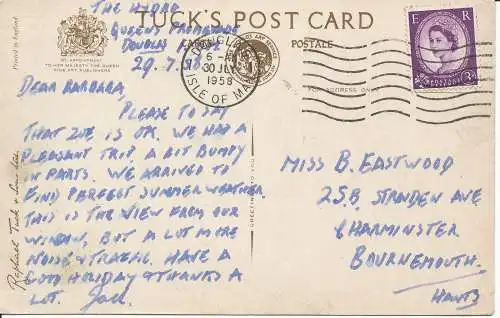 TUCK'S POST CARD
CARTE POSTALE
Printed in England
BY APPOINTMENT
TO HER MAJESTY THE QUEEN
FINE ART PUBLISHERS
Raphael Tuck & Sons Ltd.
THE HYDRO
QUEENS PROMENADE
DOUGLAS
29.7.58
DEAR BARBARA,
PLEASE TO SAY
THAT ZOE IS OK. WE HAD A
PLEASANT TRIP, A BIT BUMPY
IN PARTS. WE ARRIVED TO
FIND PERFECT SUMMER WEATHER.
THIS IS THE VIEW FROM OUR
WINDOW, BUT A LOT MORE
NOISE & TRAFFIC. HAVE A
GOOD HOLIDAY & THANKS A
LOT. Jack.
DOUGLAS
6-
30 JLY
1958
ISLE OF MAN
E R
POSTAGE REVENUE
3D
FOR ADDRESS ONLY
MISS B. EASTWOOD
25B, STRANDEN AVE
CHARMINSTER
BOURNEMOUTH.
HANTS